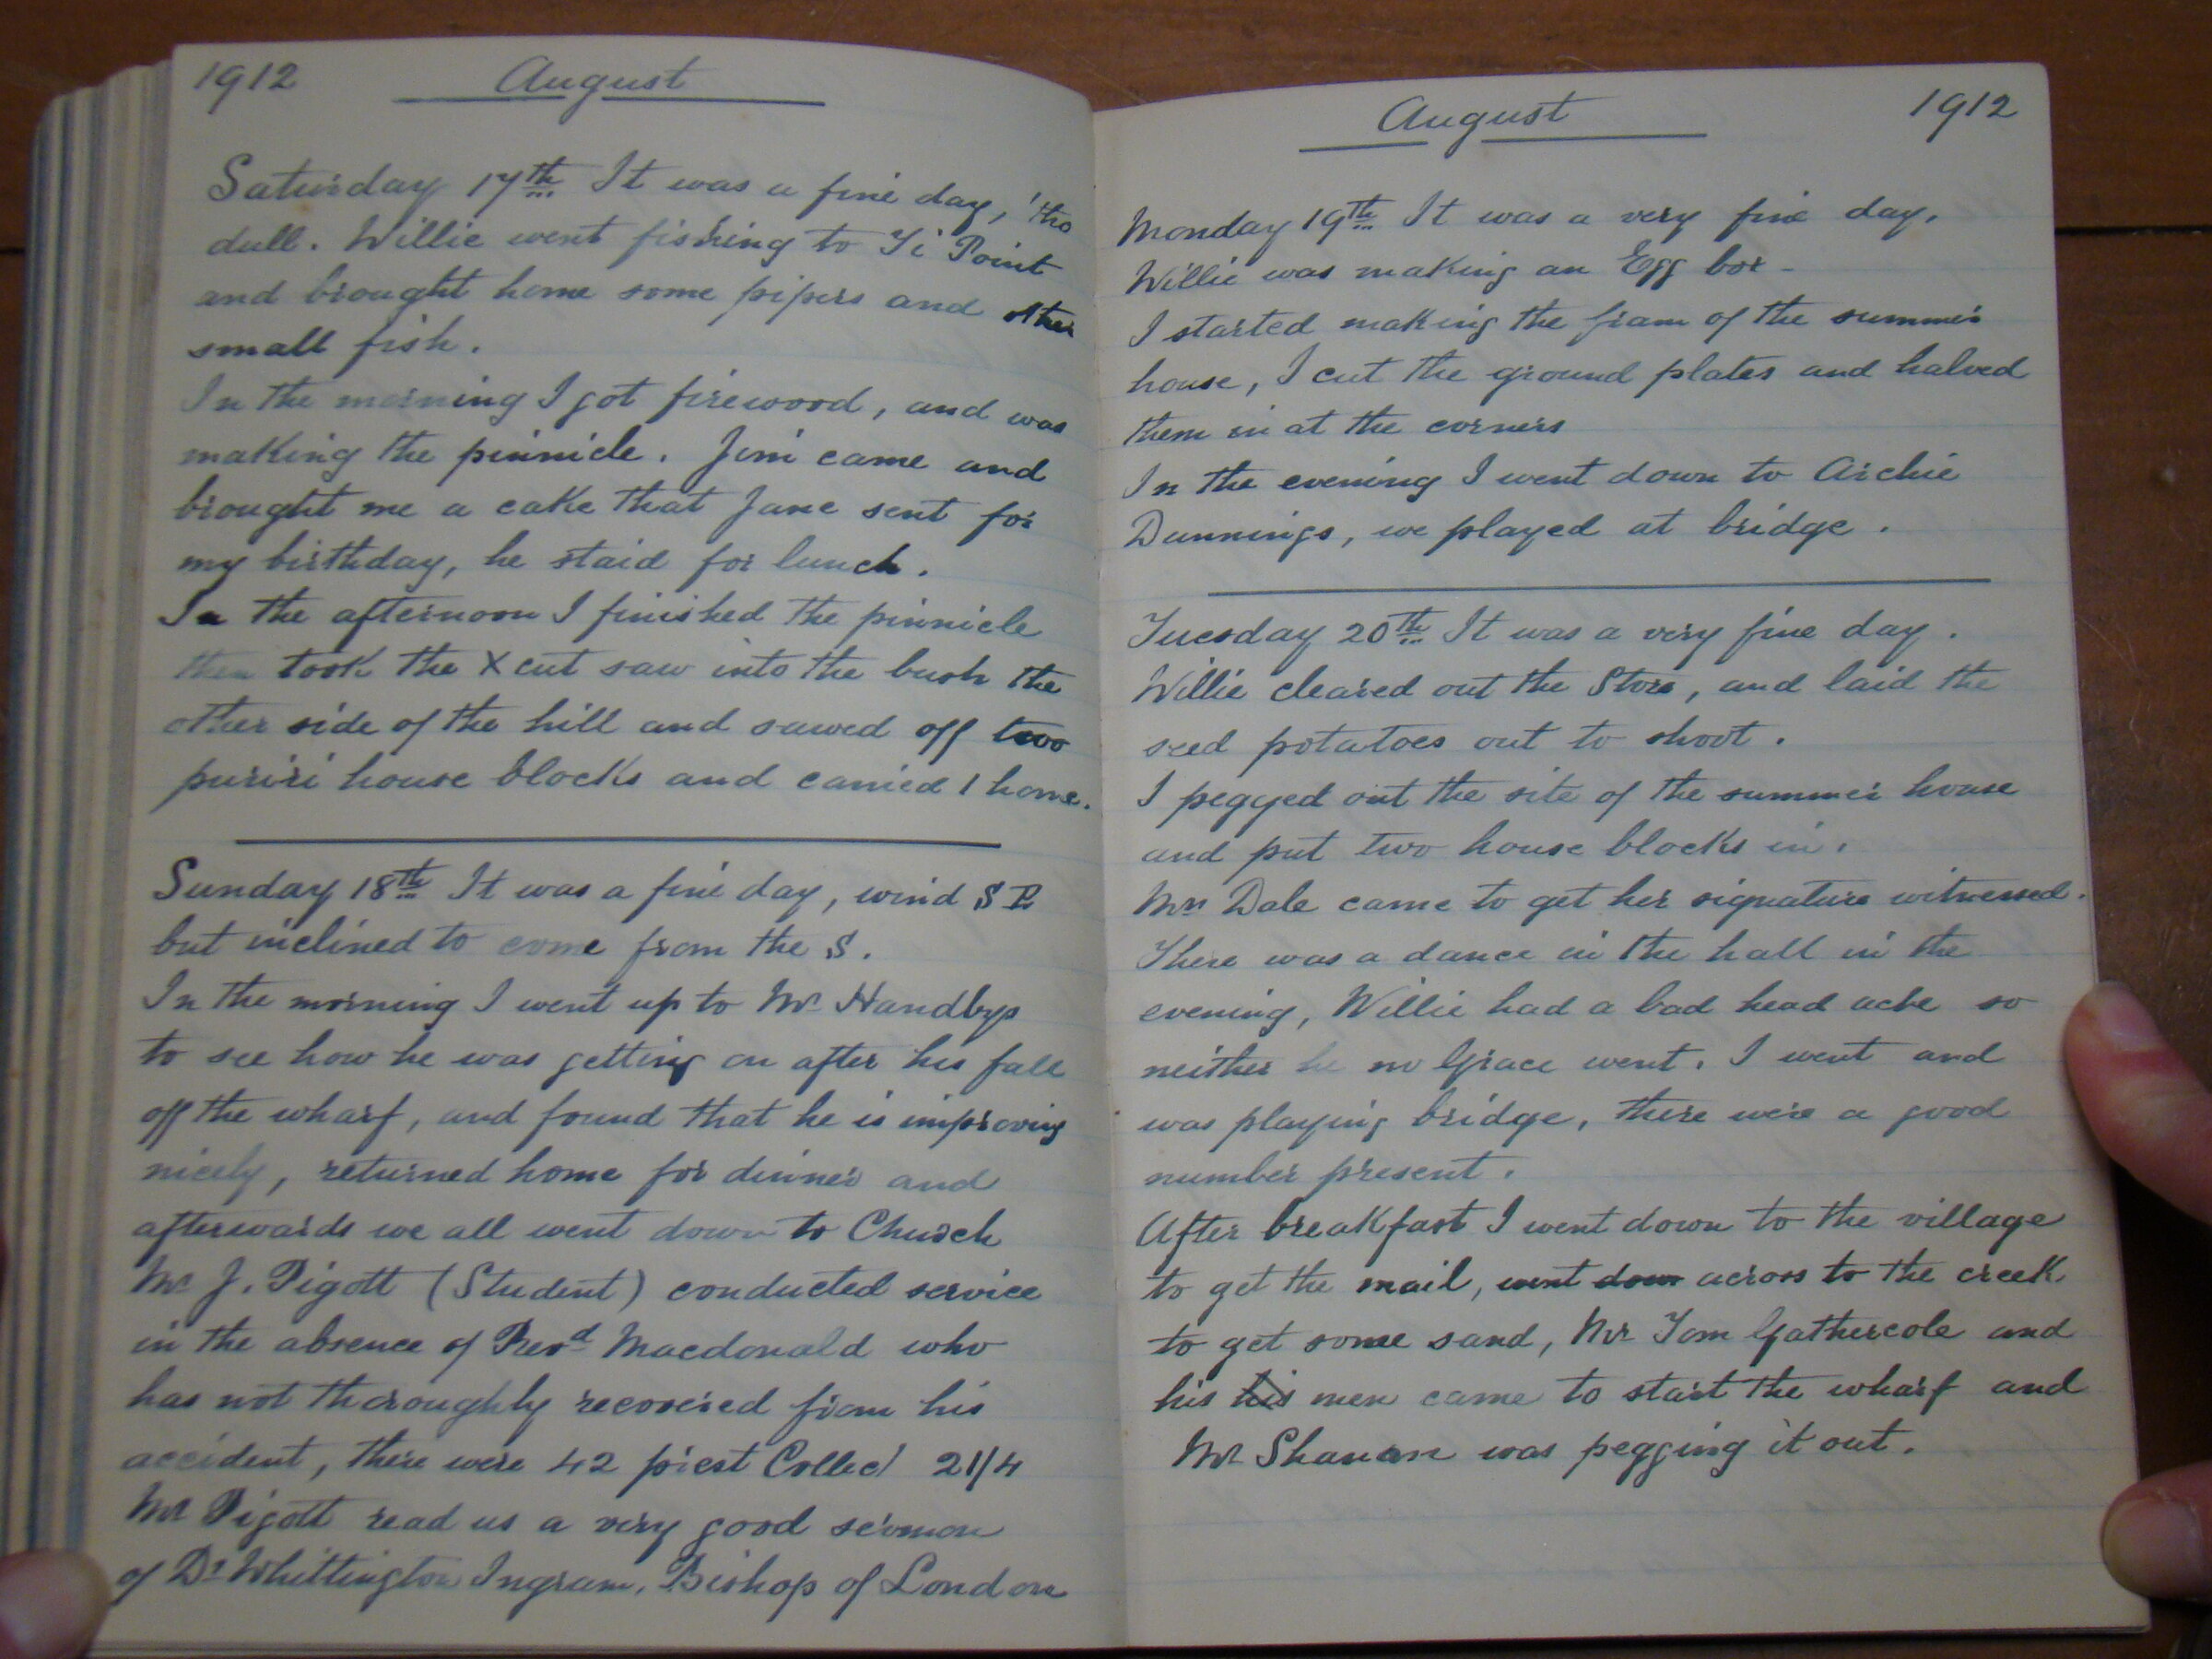 1912 August
Saturday 17th It was a fine day, 'tho
dull. Willie went fishing to Ti Point
and brought home some pipers and other
small fish.
In the morning I got firewood, and was
making the pinnicle. Jim came and
brought me a cake that Jane sent for
my birthday, he staid for lunch.
In the afternoon I finished the pinnicle
then took the X cut saw into the bush the
other side of the hill and sawed off two
puriri house blocks and carried 1 home.
Sunday 18th It was a fine day, wind S E
but inclined to come from the S.
In the morning I went up to Mr Handbys
to see how he was getting on after his fall
off the wharf, and found that he is improving
nicely, returned home for dinner and
afterwards we all went down to Church
Mr J. Pigott (Student) conducted service
in the absence of Revd Macdonald who
has not thoroughly recovered from his
accident, there were 42 prest Collec 21/4
Mr Pigott read us a very good sermon
of Dr Whittington Ingram, Bishop of London
August 1912
Monday 19th It was a very fine day.
Willie was making an Egg box -
I started making the fram of the summer
house, I cut the ground plates and halved
them in at the corners
In the evening I went down to Archie
Dunnings, we played at bridge.
Tuesday 20th It was a very fine day.
Willie cleared out the Store, and laid the
seed potatoes out to shoot.
I pegged out the site of the summer house
and put two house blocks in.
Mrs Dale came to get her signature witnessed.
There was a dance in the hall in the
evening, Willie had a bad head ache so
neither he no Grace went. I went and
was playing bridge, there were a good
number present.
After breakfast I went down to the village
to get the mail, went down across to the creek
to get some sand, Mr Tom Gathercole and
his his men came to start the wharf and
Mr Shanan was pegging it out.